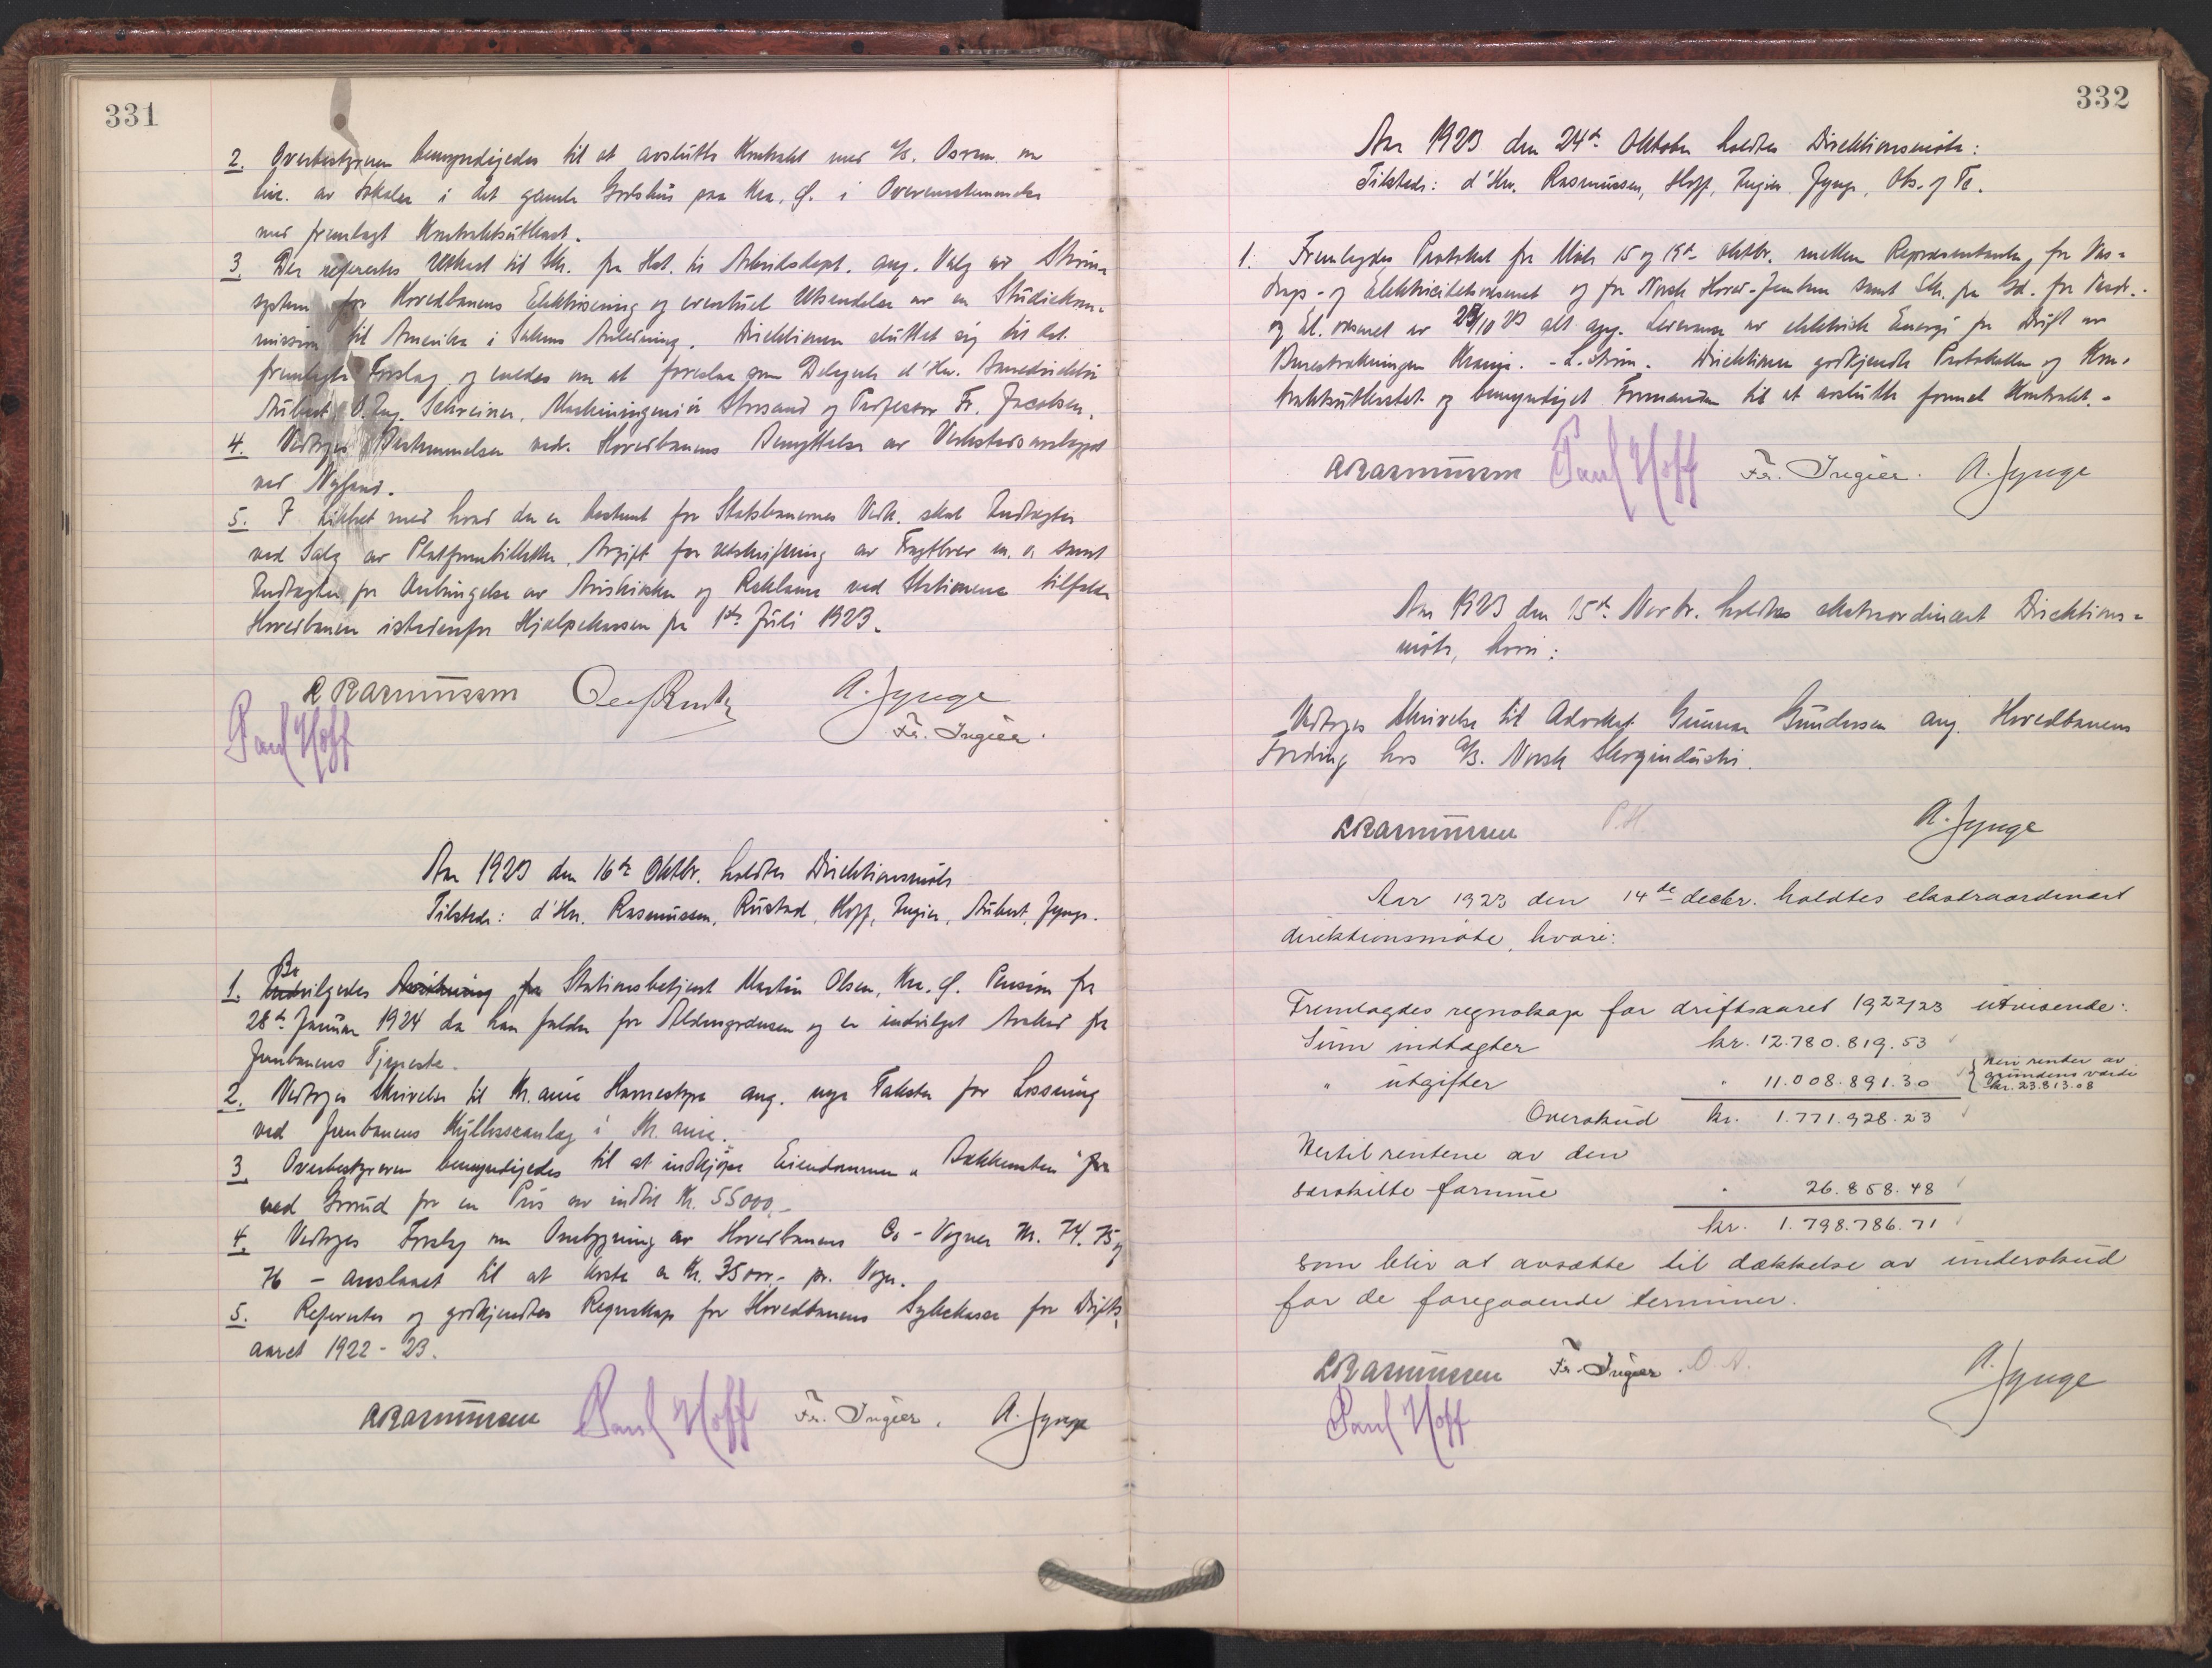 331
2. Overbestyreren bemyndigedes til at avslutte Kontrakt med A/S. Osram om
Leie av Lokaler i det gamle Godshus paa Kra. Ø. i Overensstemmelse
med fremlagt Kontraktsutkast.
3. Der refereertes Utkast til Skr. fra Hst. til Arbeidsdept. ang. Valg av Strøm=
system for Hovedbanens Elektrisering og eventuel Utsendelse av en Studiekom=
mission til Amerika i Sakens Anledning. Direktionen sluttet sig til det
fremlagte Forslag og enedes om at foreslaa som Delegerte d'Hrr. Banedirektør
Aubert, O.Ing. Schreiner, Maskiningeniør Storsand og Professor Fr. Jacobsen.
4. Vedtoges Bestemmelser vedr. Hovedbanens Benyttelse av Verkstedsanlegget
ved Nyland.
5. I Likhet med hvad der er bestemt for Statsbanernes Vedk. skal Indtægter
ved Salg av Platformbilletter, Avgift for Utskrifning av Fragtbrev m.v. samt
Indtægter for Anbringelse av Aviskiosker og Reklame ved Stationene tilfalde
Hovedbanen istedenfor Hjælpekassen fra 1ste Juli 1923.
R Rasmussen
A. Jynge
Paul Hoff
Fr. Ingier.
Aar 1923 den 16de Oktbr. holdtes Direktionsmøte
Tilstede: d'Hrr. Rasmussen, Rustad, Hoff, Ingier, Aubert, Jynge.
Be
1. Indvilgedes Ansökning fra Stationsbetjent Martin Olsen, Kra. Ø. Pension fra
28de Januar 1924 da han falder for Aldersgrænsen og er indvilget Avsked fra
Jernbanens Tjeneste.
2. Vedtoges Skrivelse til Kr.ania Havnestyre ang. nye Takster for Losning
ved Jernbanens Kullosseanlæg i Kr.ania.
3. Overbestyreren bemyndigedes til at indkjøpe Eiendommen "Bakkensten" for
ved Grorud for en Pris av indtil Kr. 55000.-
4. Vedtoges Forslag om Ombygning av Hovedbanens Co - Vogner Nr. 74. 75 og
76 - anslaaet til at koste ca Kr. 3500.- pr. Vogn.
5. Refereertes og godkjendtes Regnskap for Hovedbanens Sykekasse for Drifts=
aaret 1922 - 23.
R Rasmussen Paul Hoff Fr. Ingier. A. Jynge
332
Aar 1923 den 24de Oktober holdtes Direktionsmøte:
Tilstede: d'Hrr. Rasmussen, Hoff, Ingier, Jynge, Obs. og Te.
1. Fremlagdes Protokol fra Møte 15 og 19de oktbr. mellem Repræsentanter for Vas=
drags- og Elektricitetsvæsenet og for Norsk Hoved-Jernbane samt Skr. fra Gd. for Vasdr.-
og El. væsenet av 23/10 23 alt ang. Leverance av elektrisk Energi for Drift av
Banestrækningen Krania. - L.strøm. Direktionen godkjendte Protokollen og Kon=
traktsutkastet og bemyndiget Formanden til at avslutte formel Kontrakt.-
R Rasmussen Paul Hoff Fr. Ingier. A. Jynge
Aar 1923 den 15de Novbr. holdtes ekstraordinært Direktions=
møte, hvori:
Vedtoges Skrivelse til Advokat Gunnar Gundersen ang. Hovedbanens
Fordring hos A/S. Norsk Skogindustri.
R Rasmussen P.H. A. Jynge
Aar 1923 den 14de decbr. holdtes ekstraordinært
direktionsmøte, hvori:
Fremlagdes regnskap for driftsaaret 1922/23 utvisende:
Sum indtægter kr. 12.780.819.53
" utgifter " 11.008.891.30 { Heri renter av grundens værdi kr. 23.813.08
Overskud kr. 1.771.928.23
Hertil rentene av den
særskilte formue " 26.858.48
kr. 1.798.786.71
som blir at avsætte til dækkelse av underskud
for de foregaaende terminer.
R Rasmussen Fr. Ingier. O. A. A. Jynge
Paul Hoff